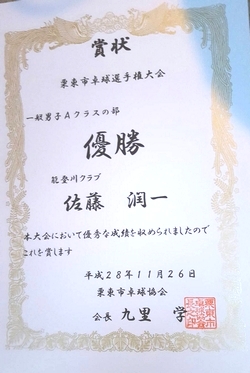 賞状
栗東市卓球選手権大会
一般男子Aクラスの部
優勝
能登川クラブ
佐藤 潤一
本大会において優秀な成績を収められましたので
これを賞します
平成28年11月26日
栗東市卓球協会
会長 九里 学